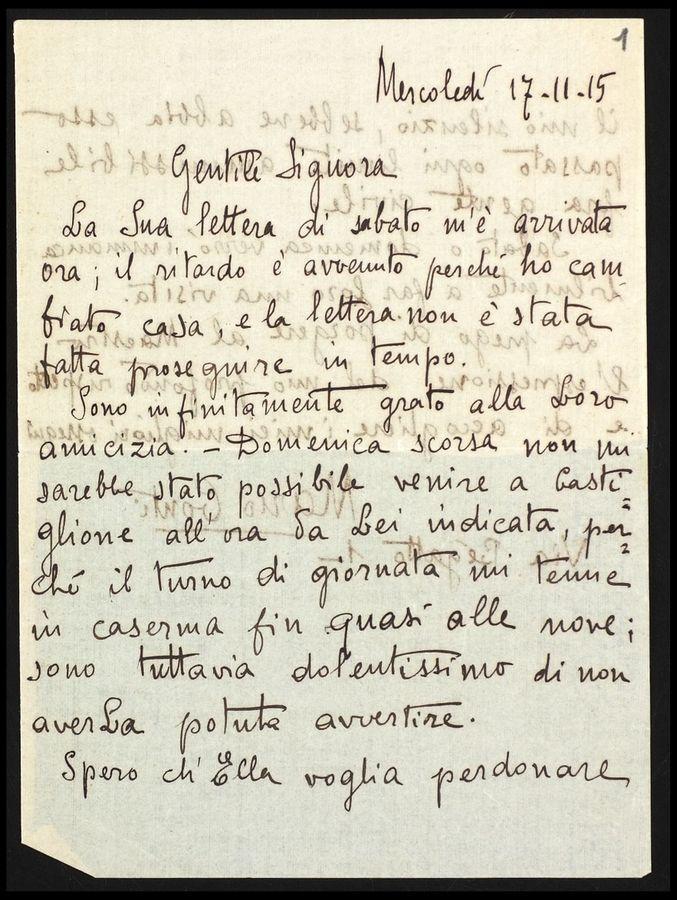 1
Mercoledì 17-11-15
Gentile Signora
La Sua lettera di sabato m'è arrivata
ora; il ritardo è avvenuto perché ho cam
biato casa, e la lettera non è stata
fatta proseguire in tempo.
Sono infinitamente grato alla Loro
amicizia. - Domenica scorsa non mi
sarebbe stato possibile venire a Casti=
glione all'ora da Lei indicata, per=
ché il turno di giornata mi tenne
in caserma fin quasi alle nove;
sono tuttavia dolentissimo di non
averLa potuta avvertire.
Spero ch'Ella voglia perdonare